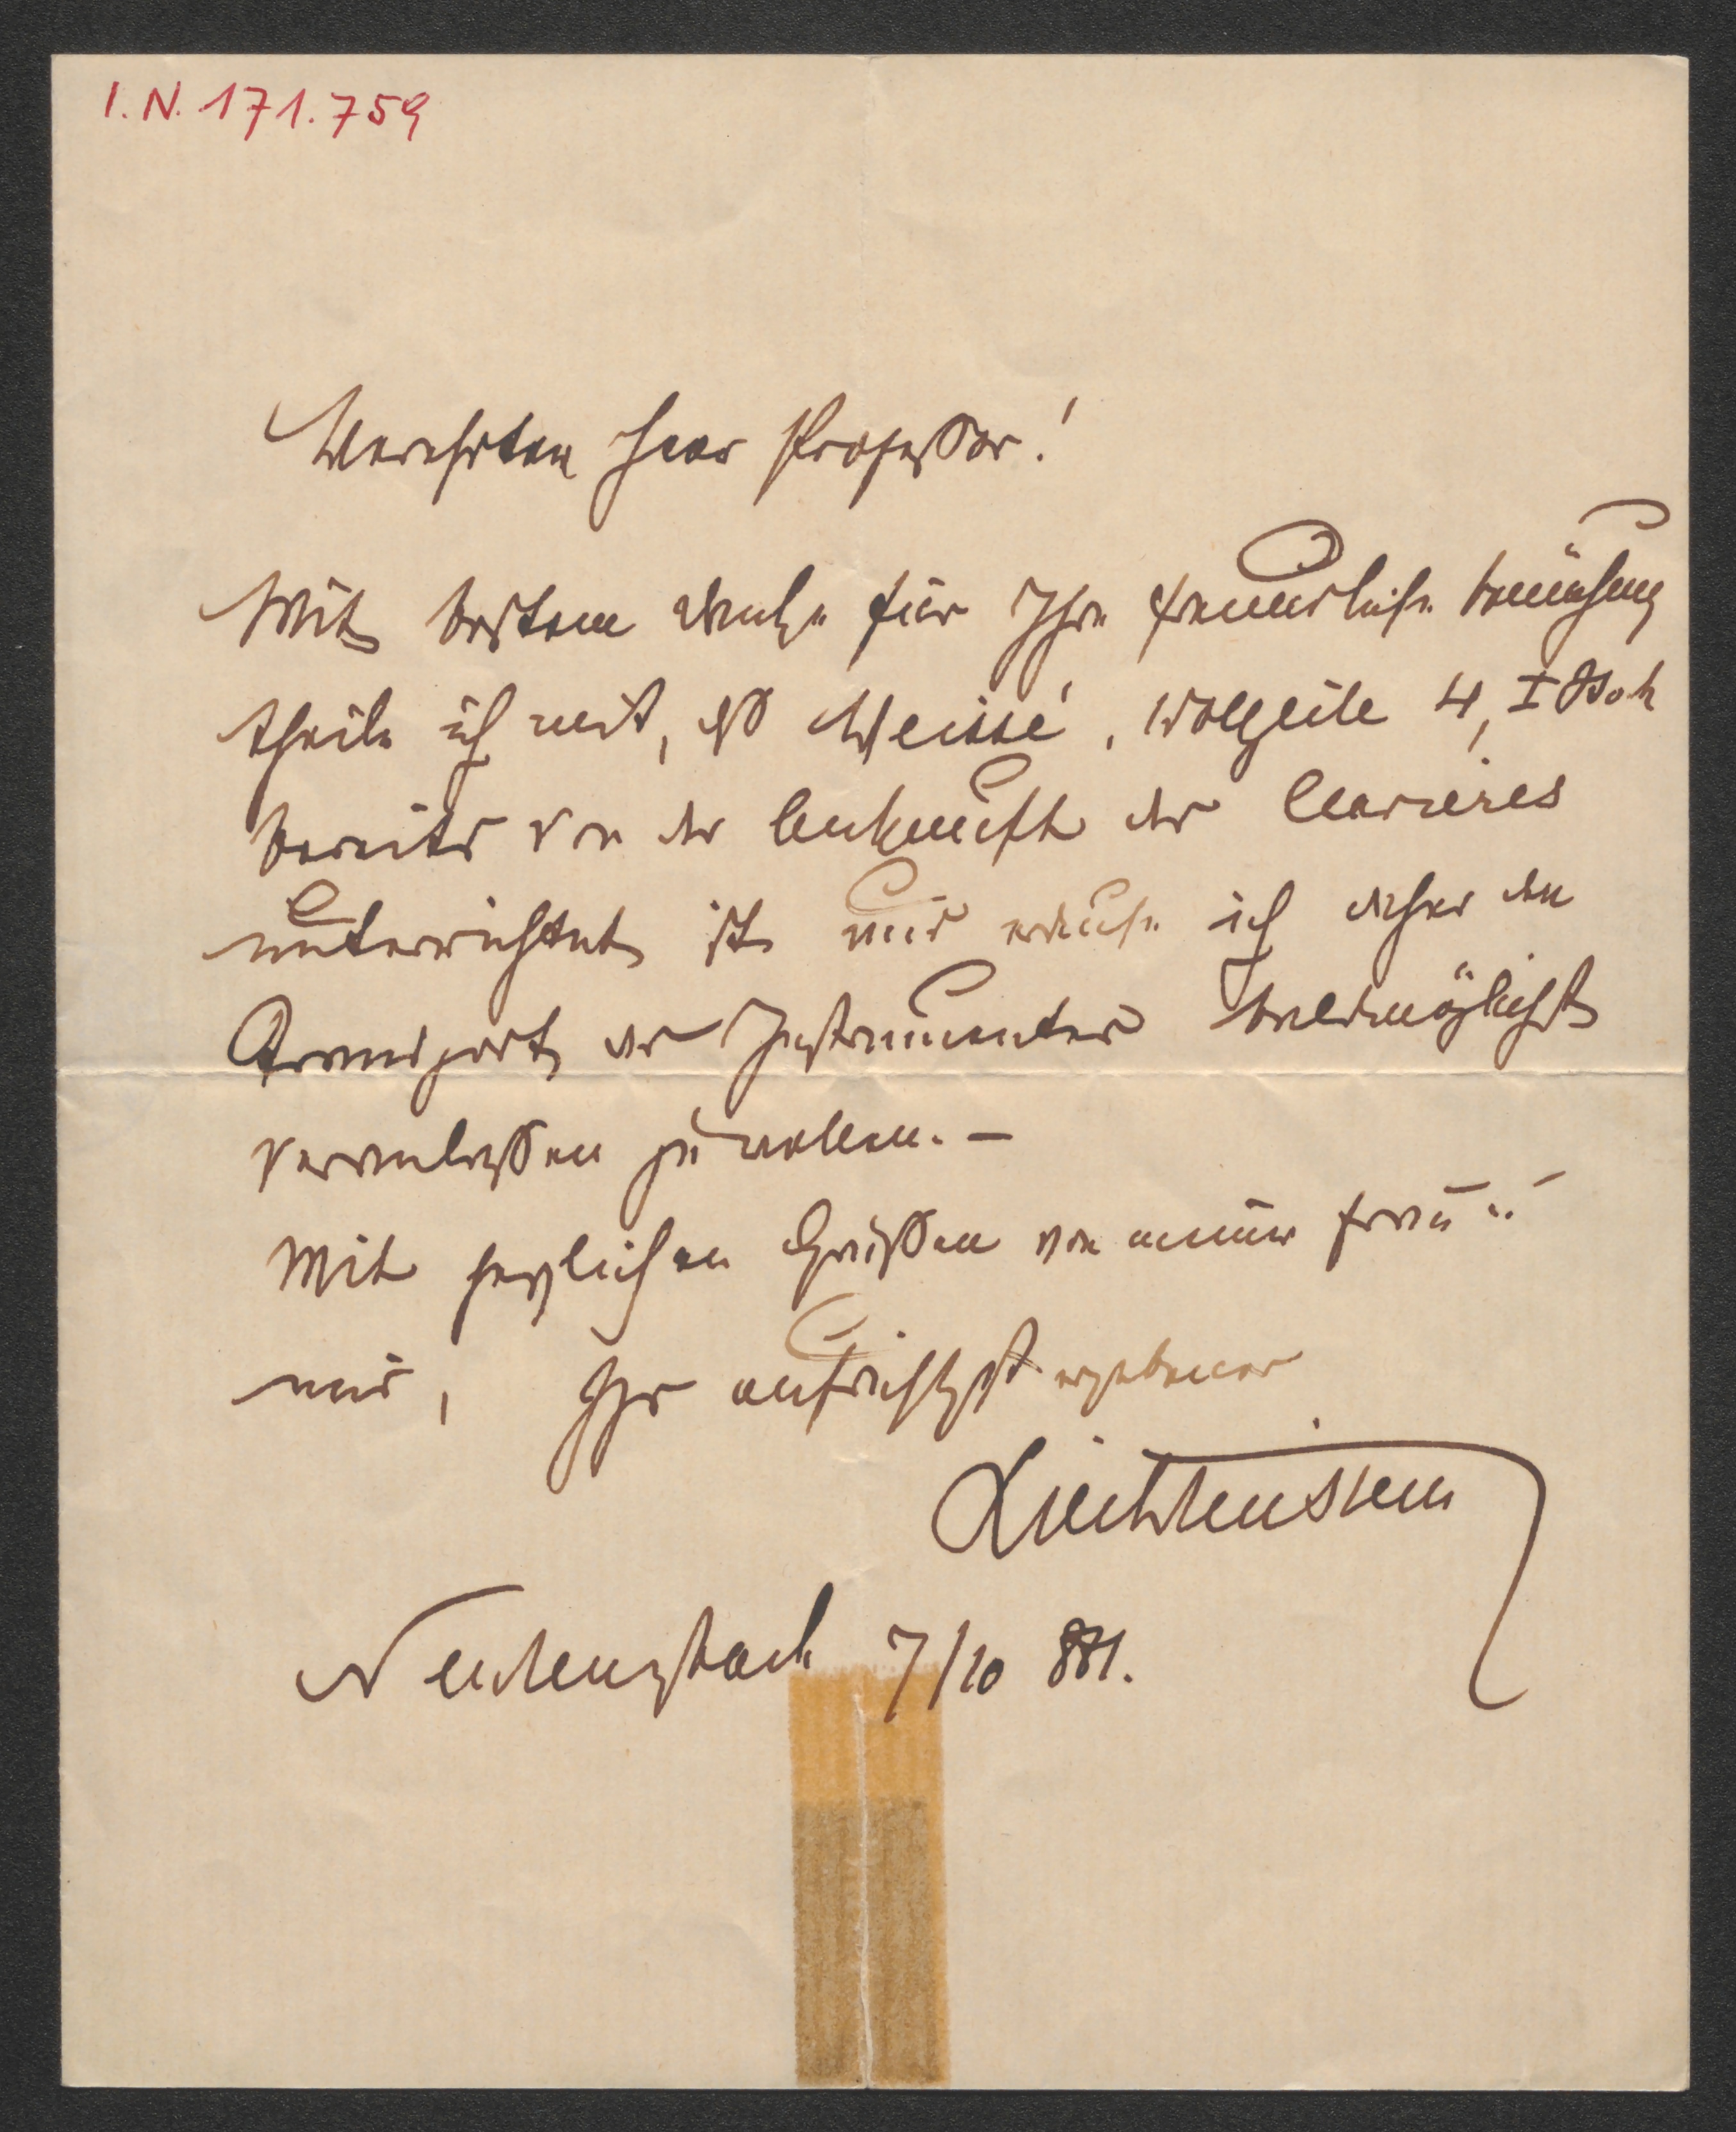 I.N. 171.759
Verehrter Herr Professor!
Mit bestem Danke für Ihre freundliche Bemühung
theile ich mit, dß Weisse, Wollzeile 4, I Stock
bereits von der Ankunft des Claviers
unterrichtet ist und ersuche ich daher den
Transport des Instrumentes baldmöglichst
veranlassen zu wollen. –
Mit herzlichen Grüßen von meiner Frau u.
mir, Ihr aufrichtigst ergebener
Liechtenstein
Neulengbach 7/10 881.